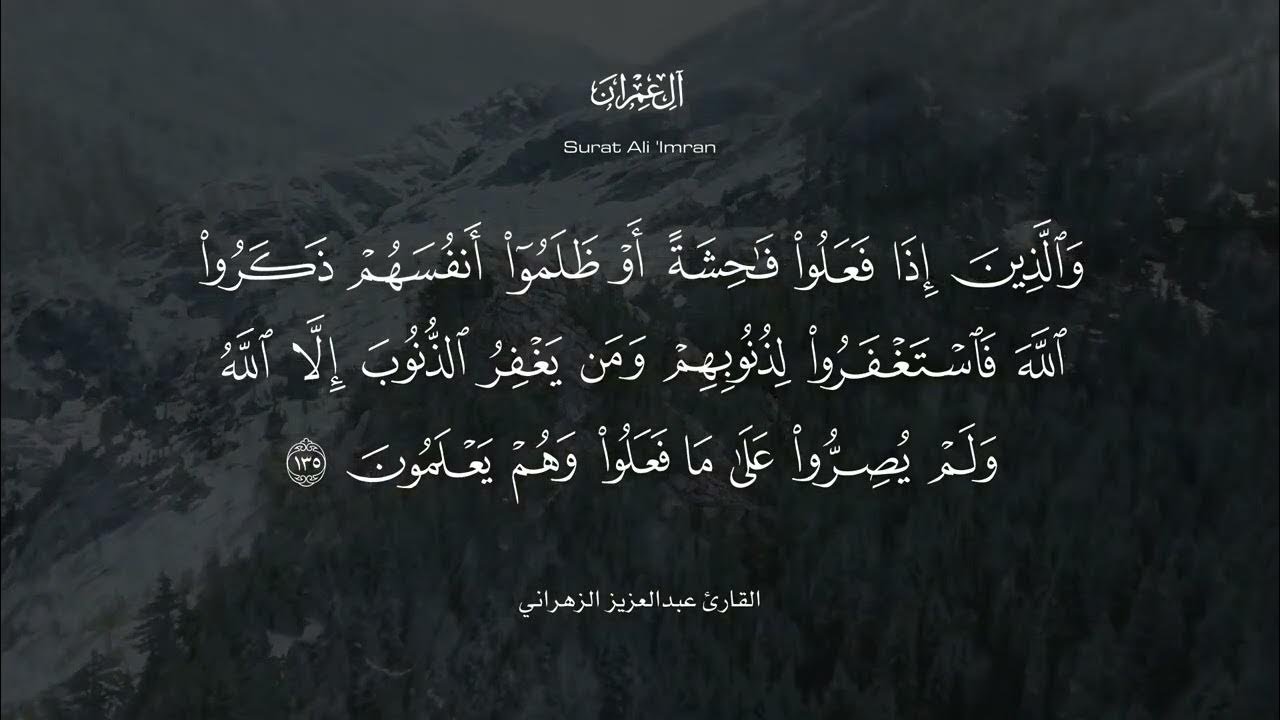 آلِ عِمۡرَان
Surat Ali 'Imran
وَٱلَّذِينَ إِذَا فَعَلُواْ فَٰحِشَةً أَوۡ ظَلَمُوٓاْ أَنفُسَهُمۡ ذَكَرُواْ
ٱللَّهَ فَٱسۡتَغۡفَرُواْ لِذُنُوبِهِمۡ وَمَن يَغۡفِرُ ٱلذُّنُوبَ إِلَّا ٱللَّهُ
وَلَمۡ يُصِرُّواْ عَلَىٰ مَا فَعَلُواْ وَهُمۡ يَعۡلَمُونَ ١٣٥
القارئ عبدالعزيز الزهراني